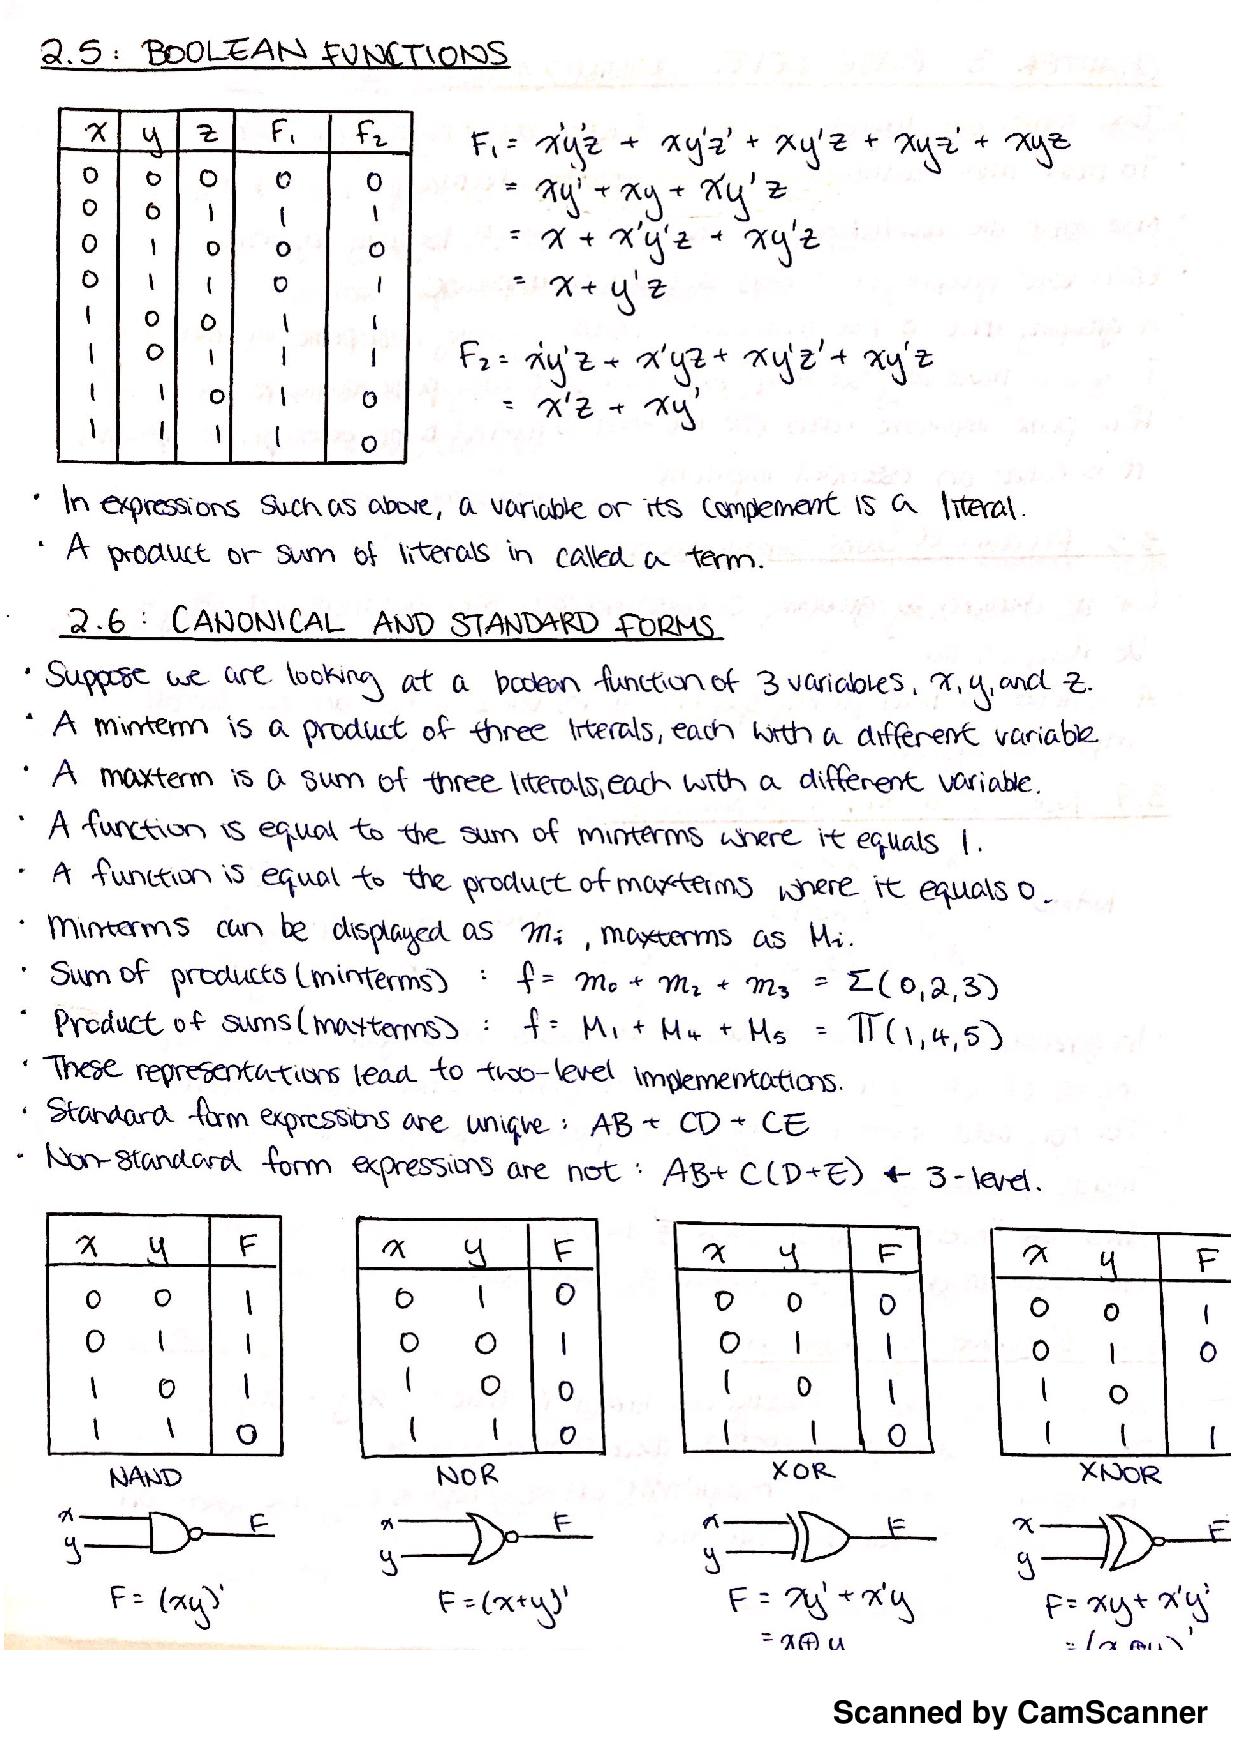 2.5: BOOLEAN FUNCTIONS
x y z F₁ F₂
0 0 0 0 0
0 0 1 1 1
0 1 0 0 0
0 1 1 0 1
1 0 0 1 1
1 0 1 1 1
1 1 0 1 0
1 1 1 1 0
F₁ = x'y'z + xy'z' + xy'z + xyz' + xyz
= xy' + xy + x'y'z
= x + x'y'z + xy'z
= x + y'z
F₂ = x'y'z + x'yz + xy'z' + xy'z
= x'z + xy'
· In expressions such as above, a variable or its compement is a literal.
· A product or sum of literals in called a term.
2.6: CANONICAL AND STANDARD FORMS
· Suppose we are looking at a boolean function of 3 variables, x, y, and z.
· A minterm is a product of three literals, each with a different variable
· A maxterm is a sum of three literals, each with a different variable.
· A function is equal to the sum of minterms where it equals 1.
· A function is equal to the product of maxterms where it equals 0.
· Minterms can be displayed as mᵢ, maxterms as Mᵢ.
· Sum of products (minterms) : f = m₀ + m₂ + m₃ = Σ(0,2,3)
· Product of sums (maxterms) : f = M₁ + M₄ + M₅ = Π(1,4,5)
· These representations lead to two-level implementations.
· Standard form expressions are unique : AB + CD + CE
· Non-standard form expressions are not : AB + C(D+E) ← 3-level.
x y F
0 0 1
0 1 1
1 0 1
1 1 0
NAND
x
y
F
F = (xy)'
x y F
0 1 0
0 0 1
1 0 0
1 1 0
NOR
x
y
F
F = (x+y)'
x y F
0 0 0
0 1 1
1 0 1
1 1 0
XOR
x
y
F
F = xy' + x'y
= x⊕y
x y F
0 0 1
0 1 0
1 0
1 1 1
XNOR
x
y
F
F = xy + x'y'
= (x⊕y)'
Scanned by CamScanner